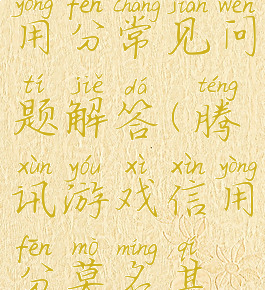 yòng fēn cháng jiàn wèn
用分常见问
tí jiě dá téng
题解答(腾
xùn yóu xì xìn yòng
讯游戏信用
fēn mò míng qí
分莫名其